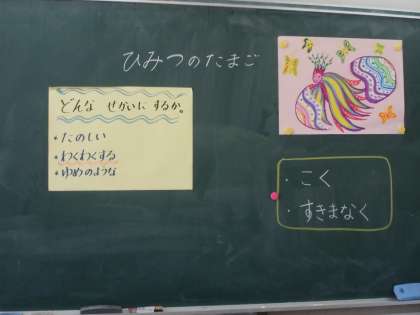 ひみつのたまご
どんな せかいに するか。
・たのしい
・わくわくする
・ゆめのような
・こく
・すきまなく